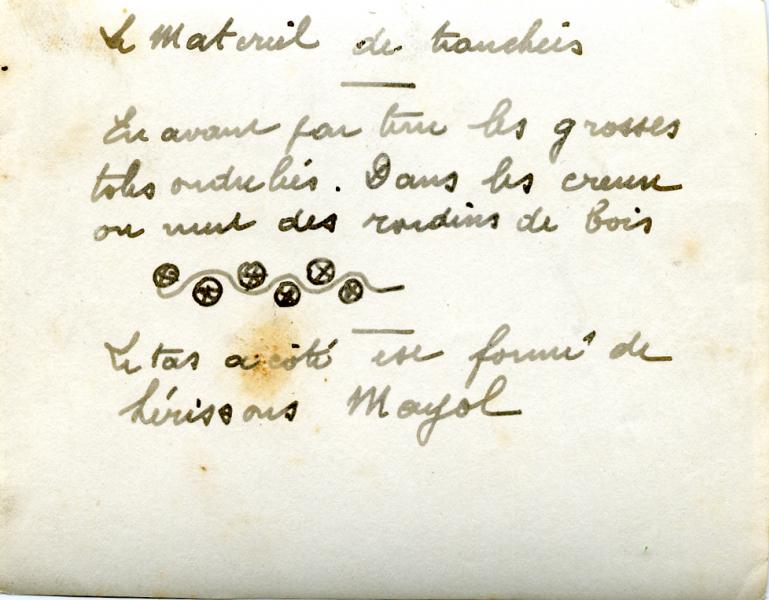 Le Materiel de tranchéis
En avant par terre les grosses
toles ondulées. Dans les creuse
on met des rondins de bois
Le tas a côté est formé de
hérissons Mayol